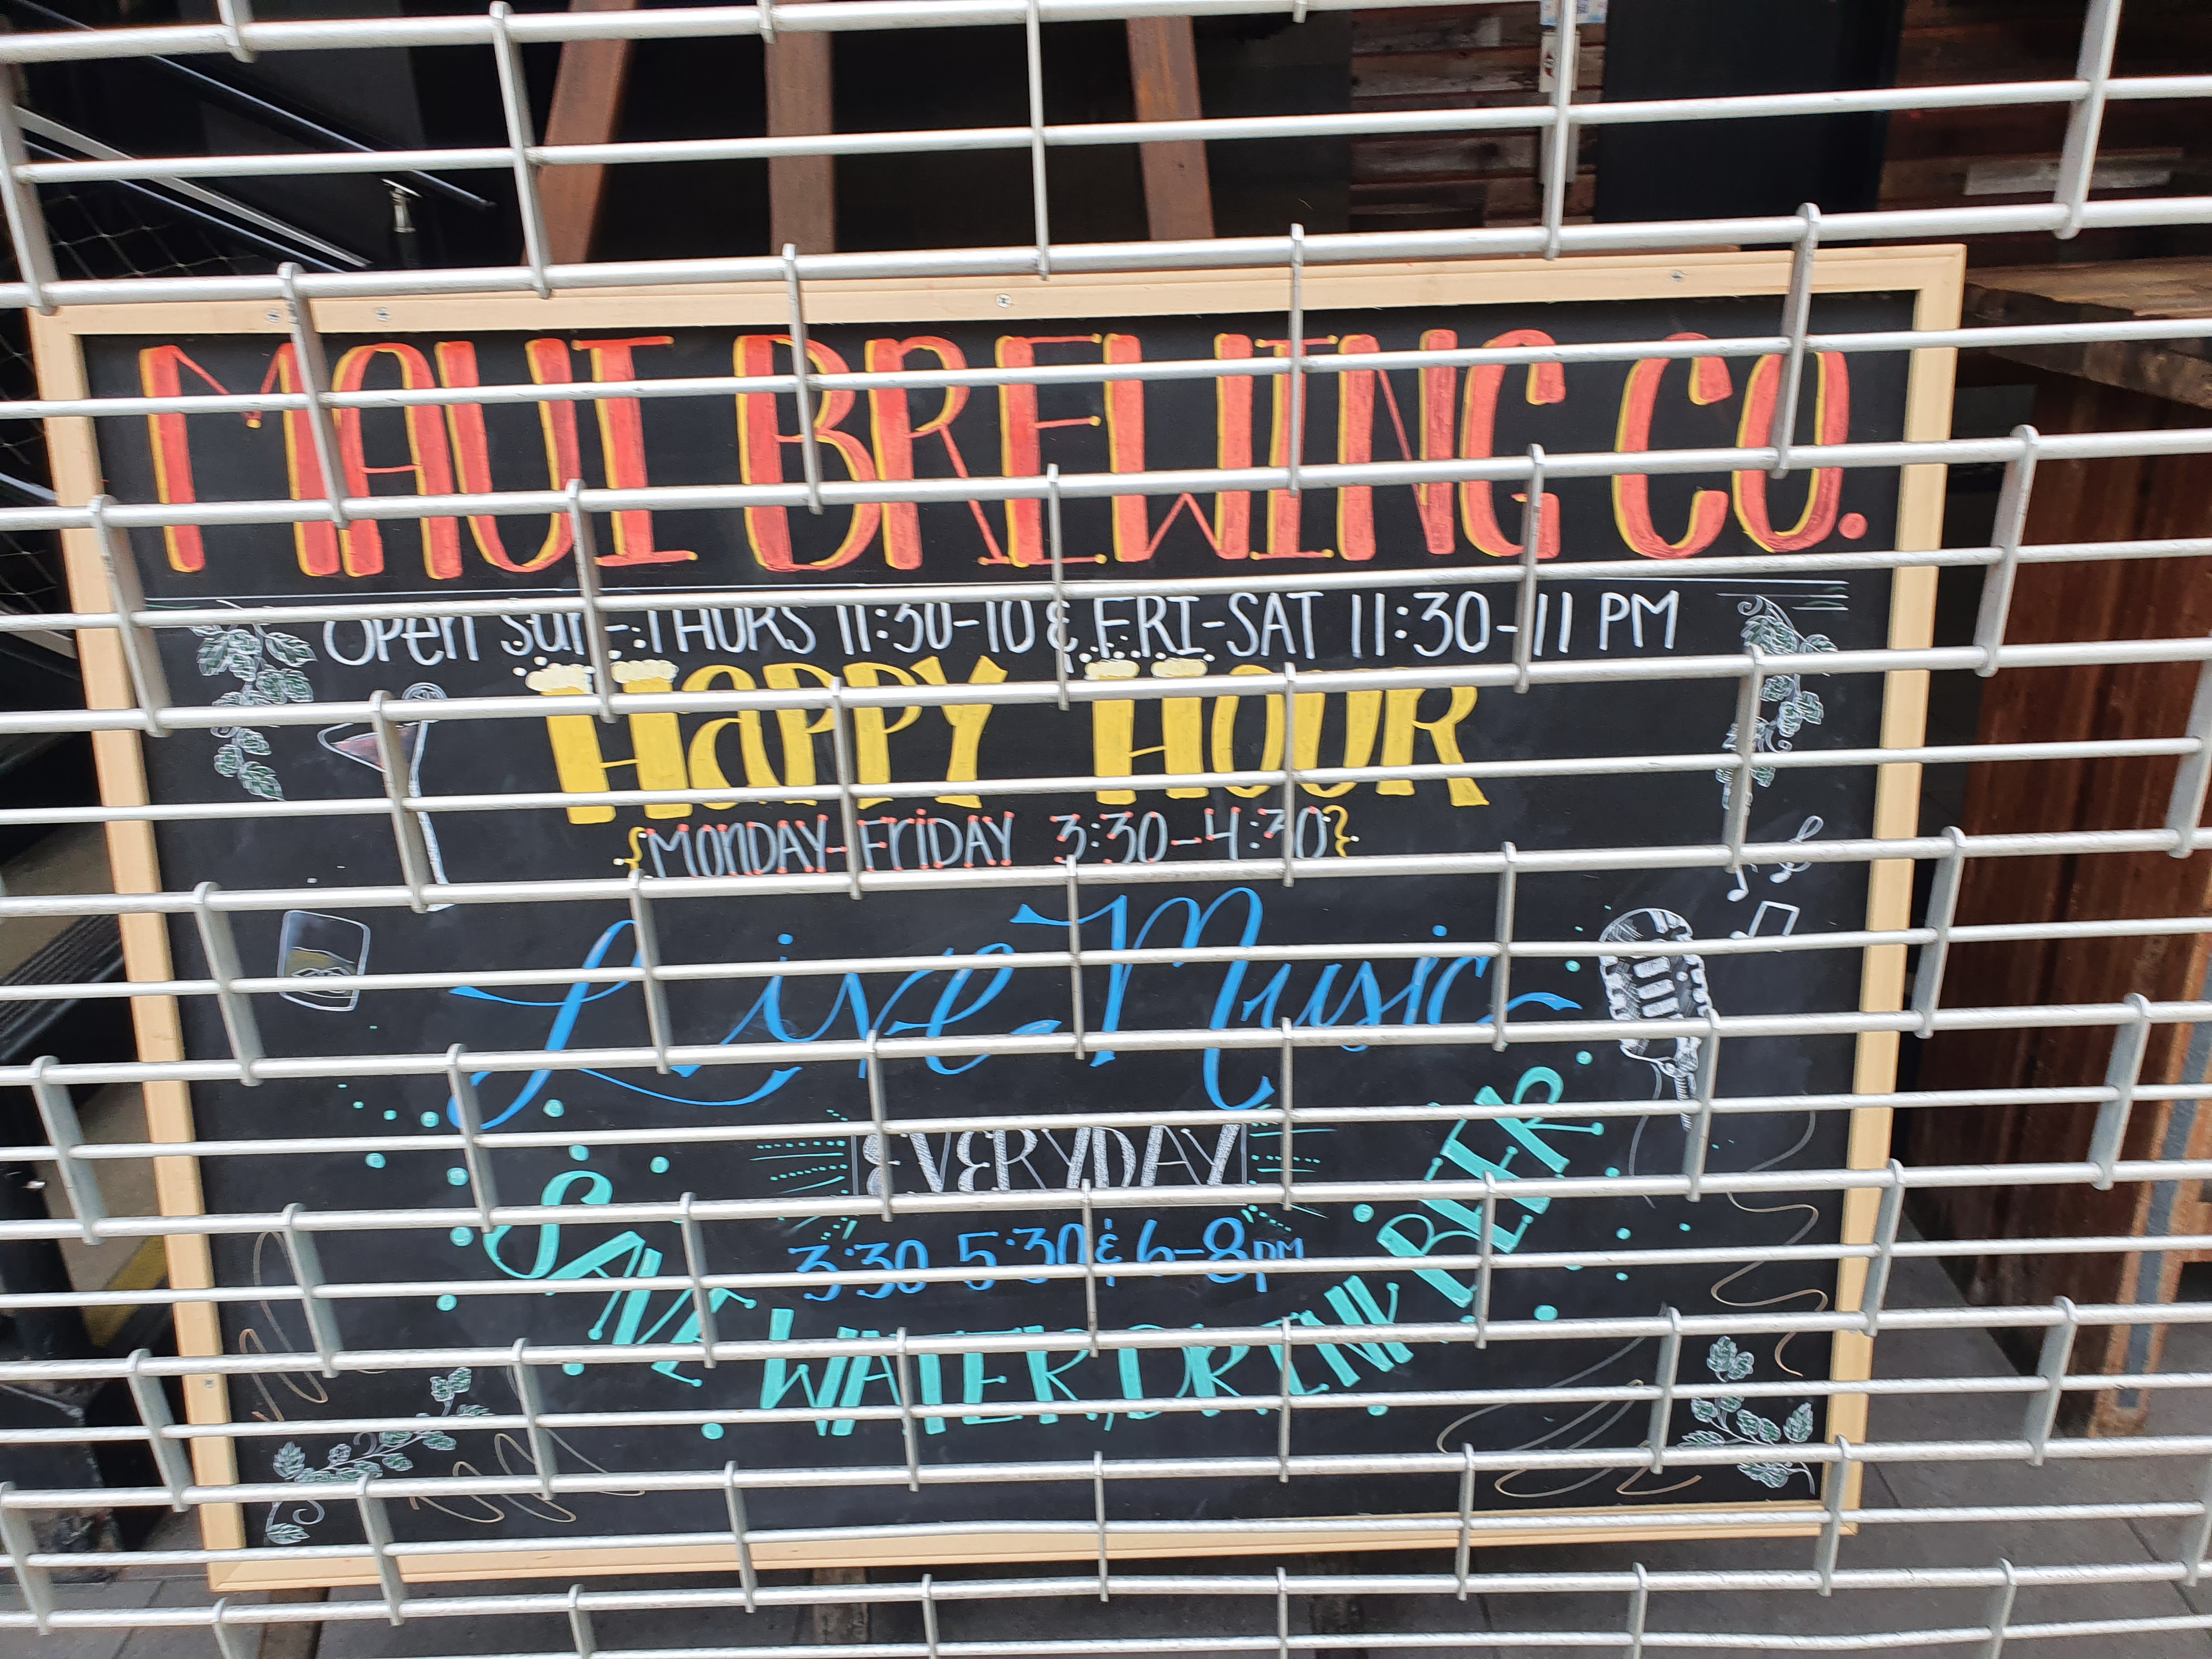 MAUI BREWING CO.
Open Sun-THURS 11:30-10 & FRI-SAT 11:30-11 PM
HaPPY HOUR
MONDAY-FRIDAY 3:30-4:30
Live Music
EVERYDAY
3:30 5:30 & 6-8PM
SAVE WATER, DRINK BEER